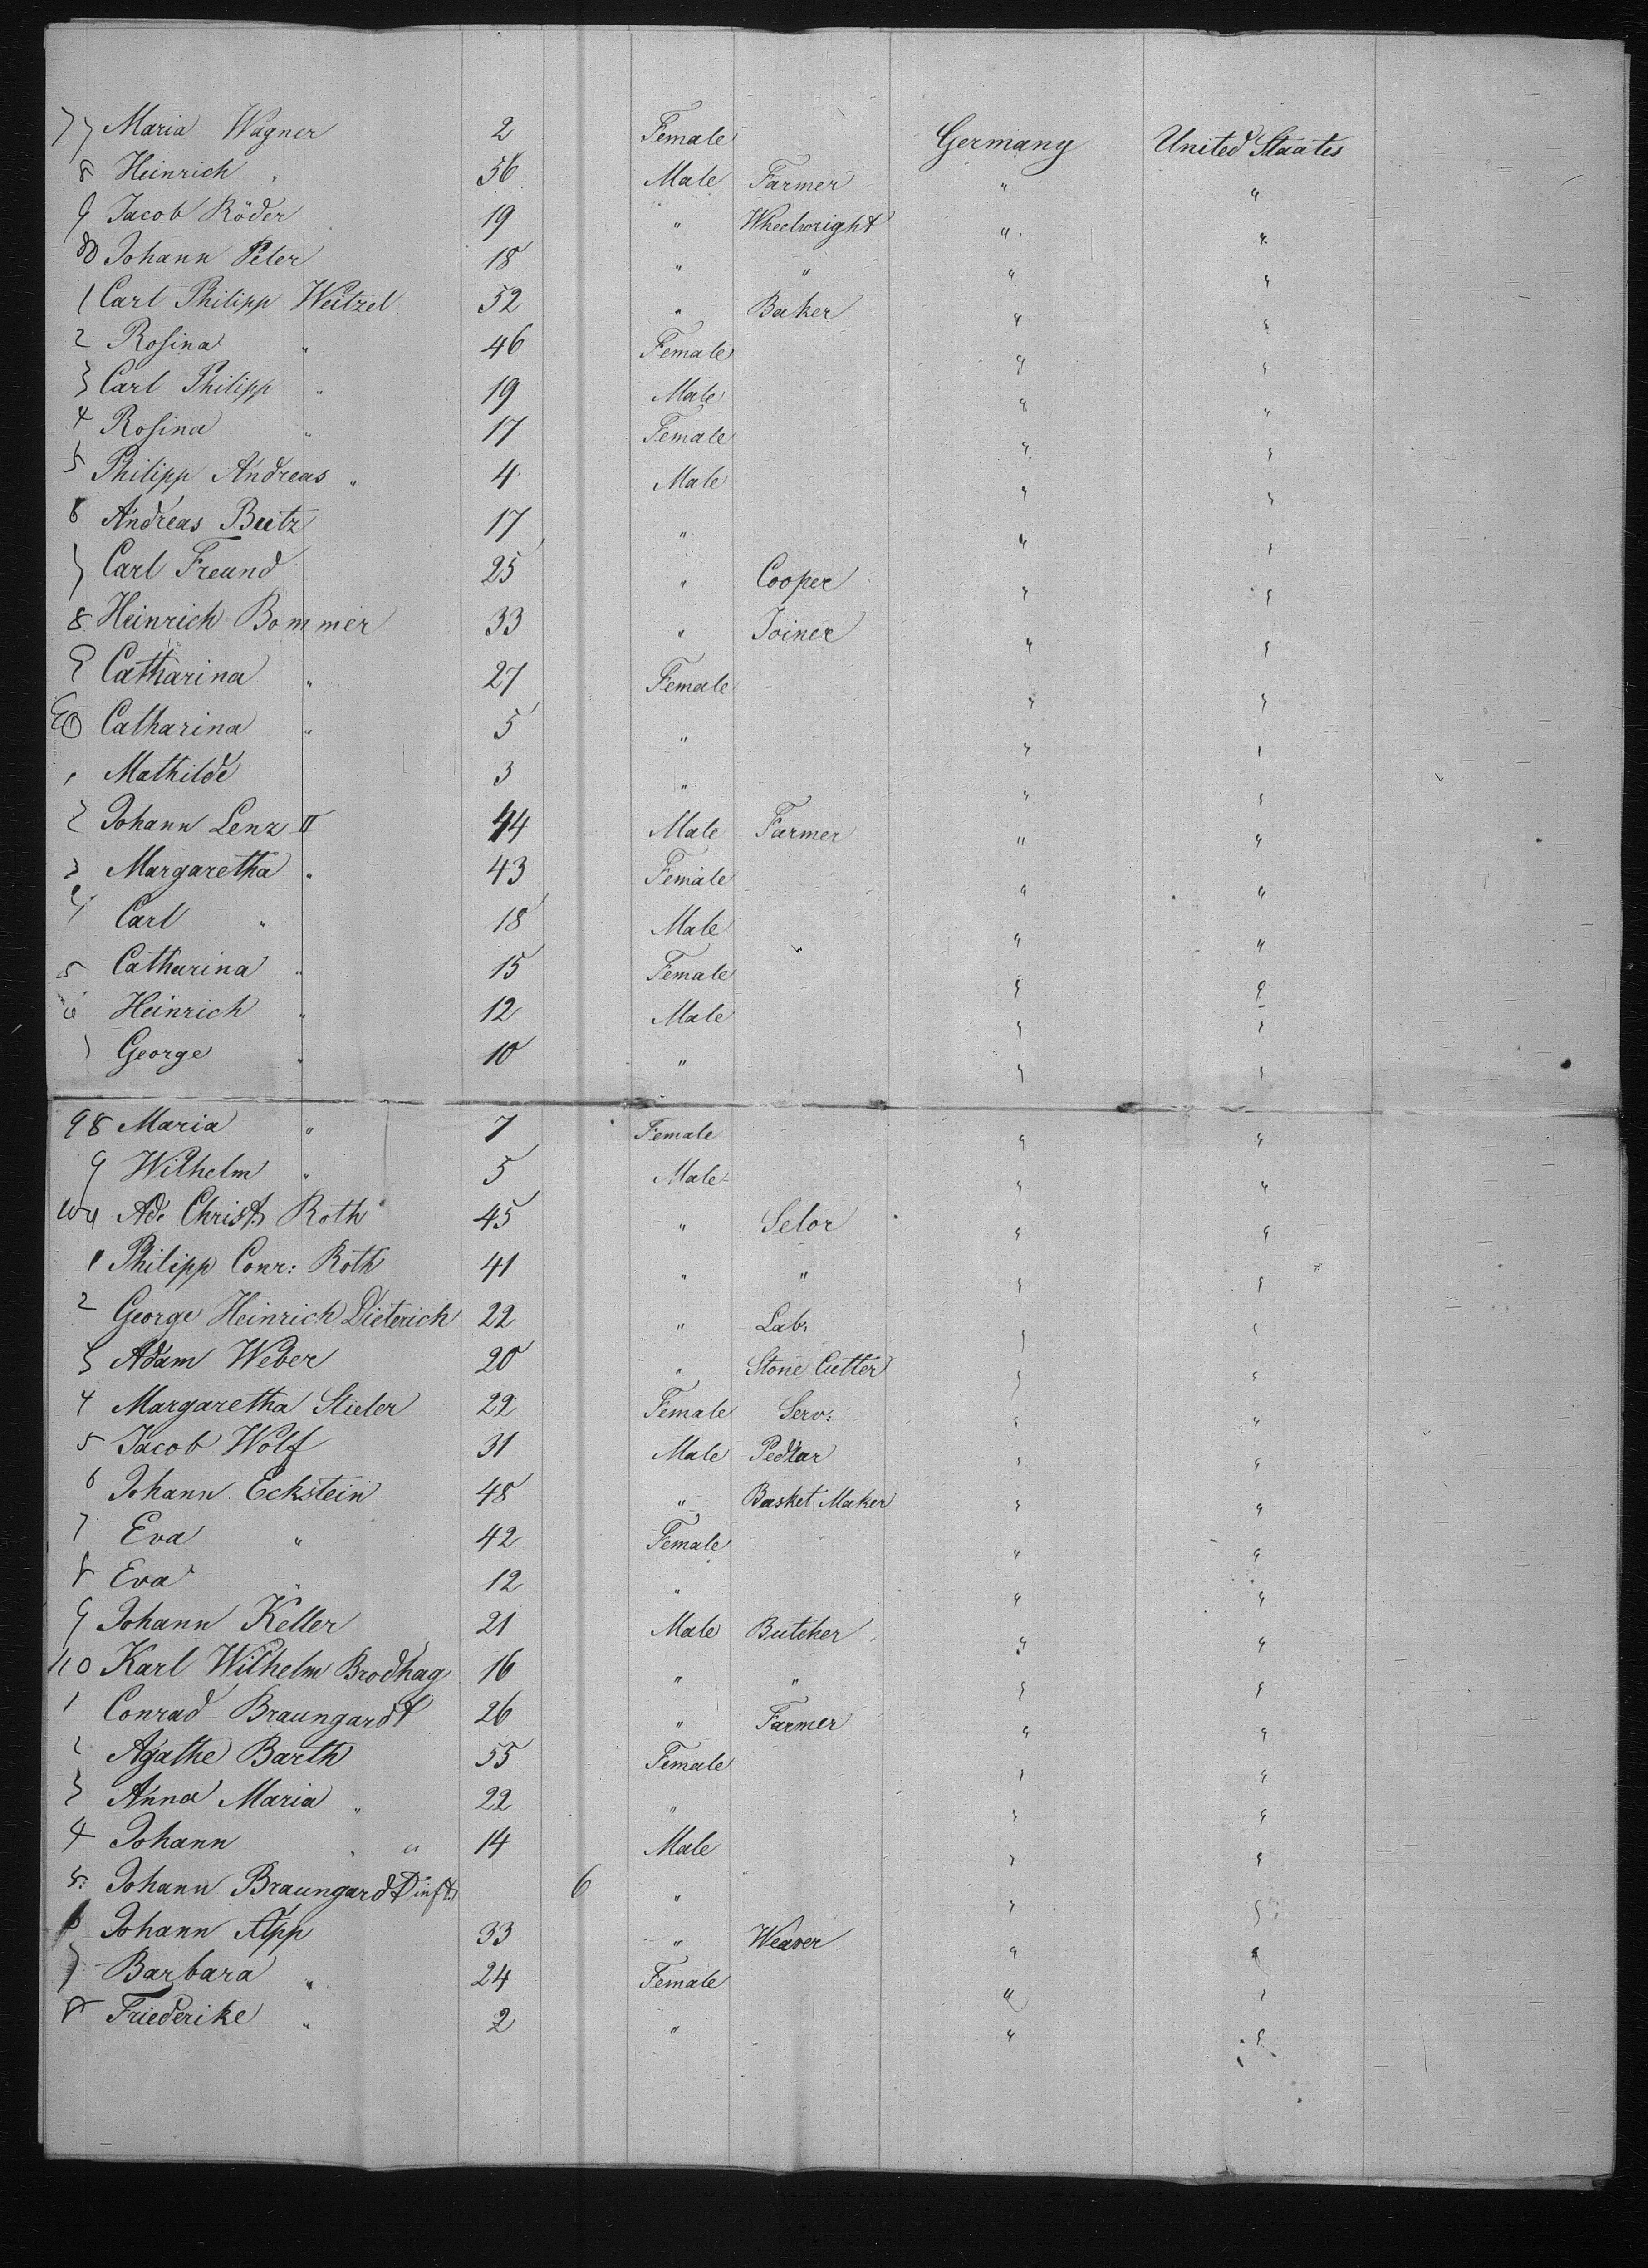 77 Maria Wagner 2 Female Germany United Staates
8 Heinrich " 56 Male Farmer " "
9 Jacob Röder 19 " Wheelwright " "
80 Johann Peter 18 " " " "
1 Carl Philipp Weitzel 52 " Baker " "
2 Rosina " 46 Female " "
3 Carl Philipp " 19 Male " "
4 Rosina " 17 Female " "
5 Philipp Andreas " 4 Male " "
6 Andreas Beitz 17 " " "
7 Carl Freund 25 " Cooper " "
8 Heinrich Bommer 33 " Joiner " "
9 Catharina " 27 Female " "
90 Catharina " 5 " " "
1 Mathilde 3 " " "
2 Johann Lenz II 44 Male Farmer " "
3 Margaretha " 43 Female " "
4 Carl " 18 Male " "
5 Catharina " 15 Female " "
6 Heinrich " 12 Male " "
7 George " 10 " " "
98 Maria " 7 Female " "
9 Wilhelm " 5 Male " "
100 Ad. Christ. Roth 45 " Selor " "
1 Philipp Conr: Roth 41 " " " "
2 George Heinrich Dieterich 22 " Lab: " "
3 Adam Weber 20 " Stone Cutter " "
4 Margaretha Stieler 22 Female Serv: " "
5 Jacob Wolf 31 Male Pedlar " "
6 Johann Eckstein 48 " Basket Maker " "
7 Eva " 42 Female " "
8 Eva " 12 " " "
9 Johann Keller 21 Male Butcher " "
110 Karl Wilhelm Brodhag 16 " " " "
1 Conrad Braungardt 26 " Farmer " "
2 Agathe Barth 55 Female " "
3 Anna Maria " 22 " " "
4 Johann " " 14 Male " "
5 Johann Braungardt inft. 6 " " "
6 Johann App 33 " Weaver " "
7 Barbara " 24 Female " "
8 Friederike " 2 " " "